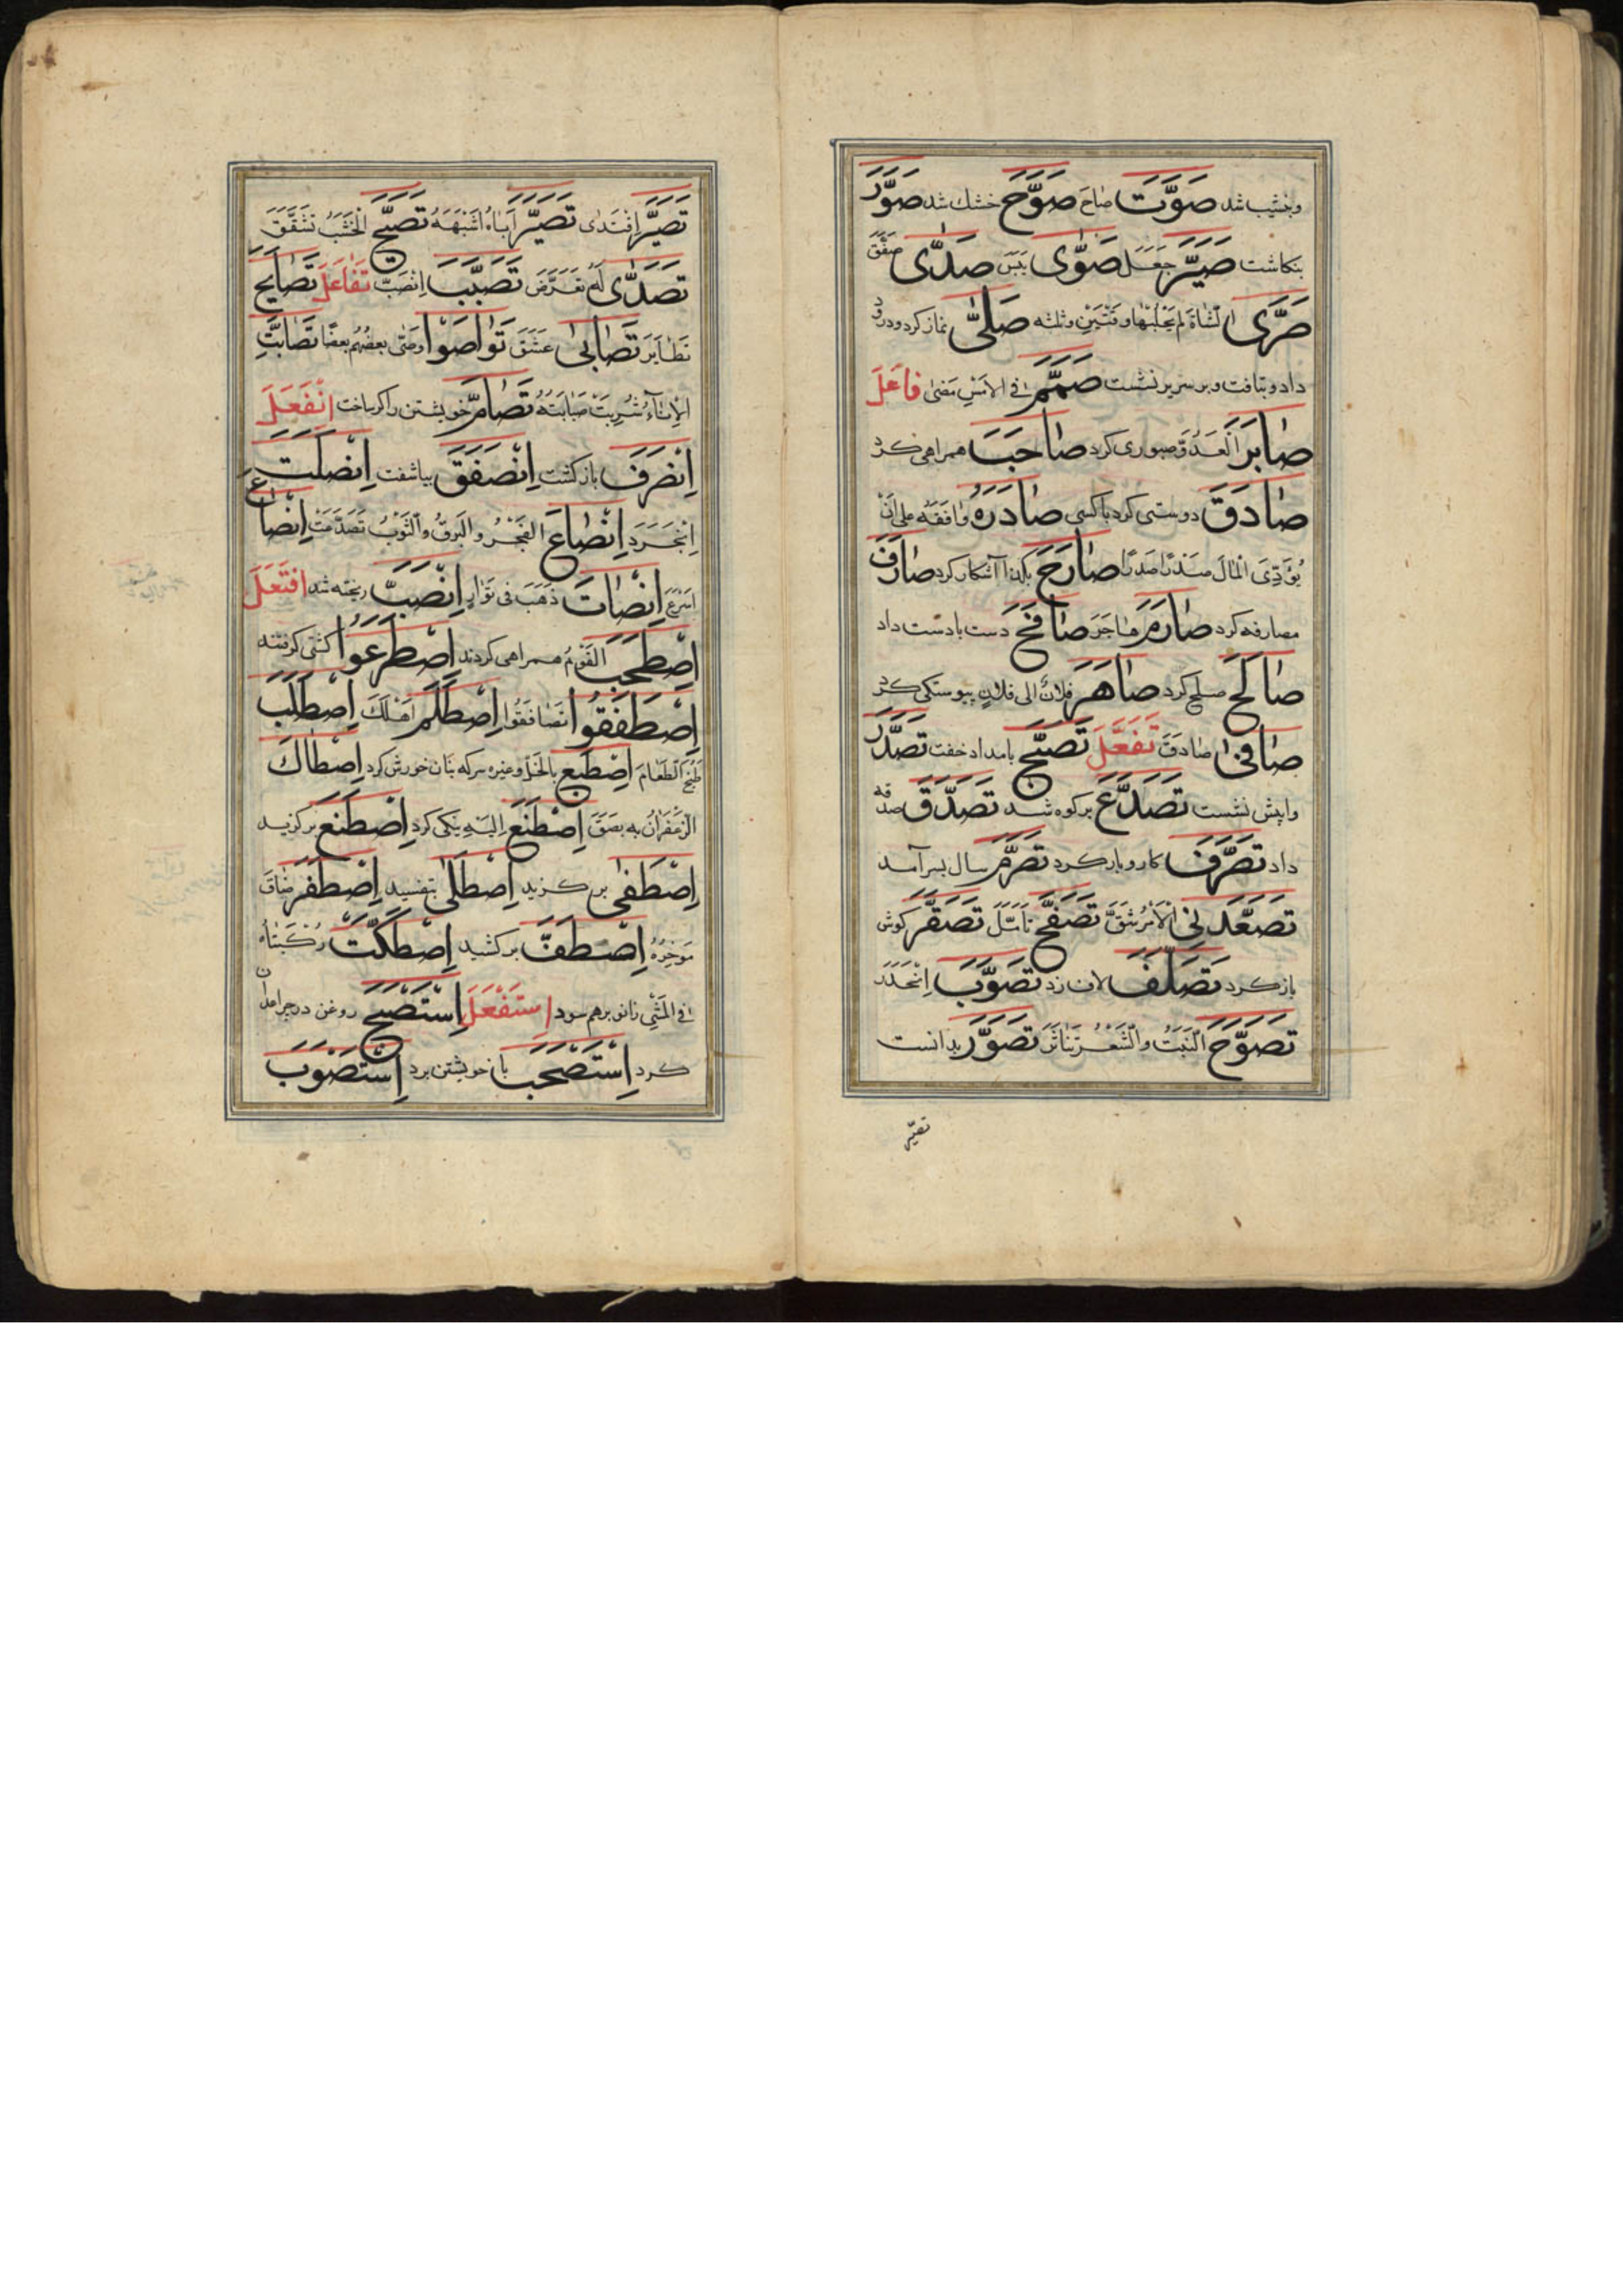 وبنشیب شد صَوَّتَ صَاحَ صَوَّحَ خشك شد صَوَّرَ
بنكاشت صَیَّرَ جَعَلَ صَوّٰی یَبِسَ صَدّٰی صَفَّقَ
صَرّٰی الشَّاةَ لم یَحْلُبْهَا وقتین وثلثه صَلّٰی نماز کرد ودرود
داد وبتافت وبر سرین نشست صَمَّمَ فی الامْرِ مَضٰی فَاعَلَ
صَابَرَ الْعَدُوَّ صبوری کرد صَاحَبَ همراهی کرد
صَادَقَ دوستی کرد با کسی صَادَرَهُ وَافَقَهُ علی اَنْ
یُؤَدِّیَ الْمَالَ صَارَحَ آشکار کرد صَارَفَ
مصارفه کرد صَارَمَ هَاجَرَ صَافَحَ دست بادست داد
صَالَحَ صلح کرد صَاهَرَ فلانٌ الی فلانٍ پیوستکی کرد
صَافٰی صَادَقَ تَفَعَّلَ تَصَبَّحَ بامداد خفت تَصَدَّرَ
واپیش نشست تَصَدَّعَ برکوه شد تَصَدَّقَ صدقه
داد تَصَرَّفَ کاروبار کرد تَصَرَّمَ سال بسر آمد
تَصَعَّدَ لِی الْاَمْرُ شَقَّ تَصَفَّحَ تَاَمَّلَ تَصَقَّرَ کوش
باز کرد تَصَلَّفَ لاف زد تَصَوَّبَ اِنْحَدَرَ
تَصَوَّحَ النَّبَتُ والشَّعْرُ تَنَاثَرَ تَصَوَّرَ بدانست
تصیّر
تَصَیَّرَ اِقْتَدٰی تَصَیَّرَ اَبَاهُ اَشْبَهَهُ تَصَیَّحَ الْخَشَبُ تَشَقَّقَ
تَصَدّٰی لَهُ تَعَرَّضَ تَصَبَّبَ اِنْصَبَّ تَفَاعَلَ تَصَایَحَ
تَطَایَرَ تَصَابٰی عَشِقَ تَوَاصَوْا وصّٰی بعضُهُم بعضًا تَصَابَّتِ
الْاِنَاءَ شَرِبَتْ صُبَابَتَهُ تَصَامَّ خویشتن را کر ساخت اِنْفَعَلَ
اِنْصَرَفَ باز کشت اِنْصَفَقَ بیاشفت اِنْصَلَتَ
اِنْجَرَدَ اِنْصَاعَ الفَجْرُ والبَرقُ والثَّوْبُ اِنْصَاعَ
اَسْرَعَ اِنْصَاتَ ذَهَبَ فی تَوَارٍ اِنْصَبَّ ریخته شد اِفْتَعَلَ
اِصْطَحَبَ القَوْمُ همراهی کردند اِصْطَرَعُوا کشتی کرفتند
اِصْطَفَقُوا تَصَافَقُوا اِصْطَلَمَ اَهْلَكَ اِصْطَلَبَ
طَبَخَ الطَّعَامَ اِصْطَبَغَ بالخَلِّ وغیره سرکه بنان خورش کرد اِصْطَاكَ
الزَّعْفَرَانُ به بَصَقَ اِصْطَنَعَ اِلَیْهِ نیکی کرد اِصْطَنَعَ برکزید
اِصْطَفٰی برکزید اِصْطَلٰی بتفسید اِصْطَفَرَ ضَاقَ
اِصْطَفَّ برکشید اِصْطَكَّتْ رُكْبَتَاهُ
فی الْمَشْیِ زانو برهم سود اِسْتَفْعَلَ اِسْتَصْبَحَ روغن در چراغدان
کرد اِسْتَصْحَبَ با خویشتن برد اِسْتَصْوَبَ